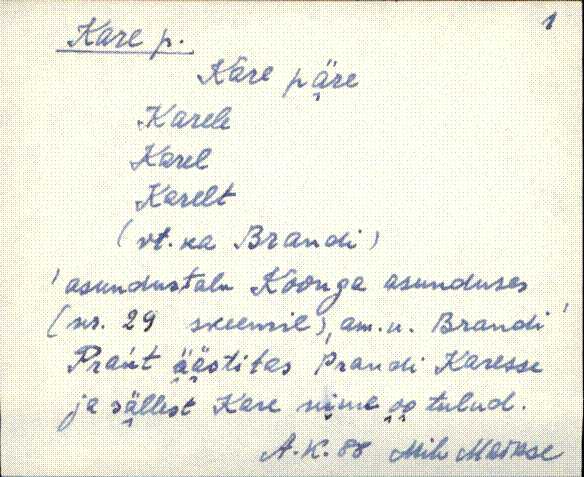 1
Kare p.
Kare pä̮re
Karele
Karel
Karelt
(vt. ka Brandi)
'asundustalu Koonga asunduses
(nr. 29 skeemil), am. n. Brandi'
Prańt ä̮ä̮stitas Prandi Karesse
ja sä̮llest Kare nime o̮o̮ tulud.
A.K. 88